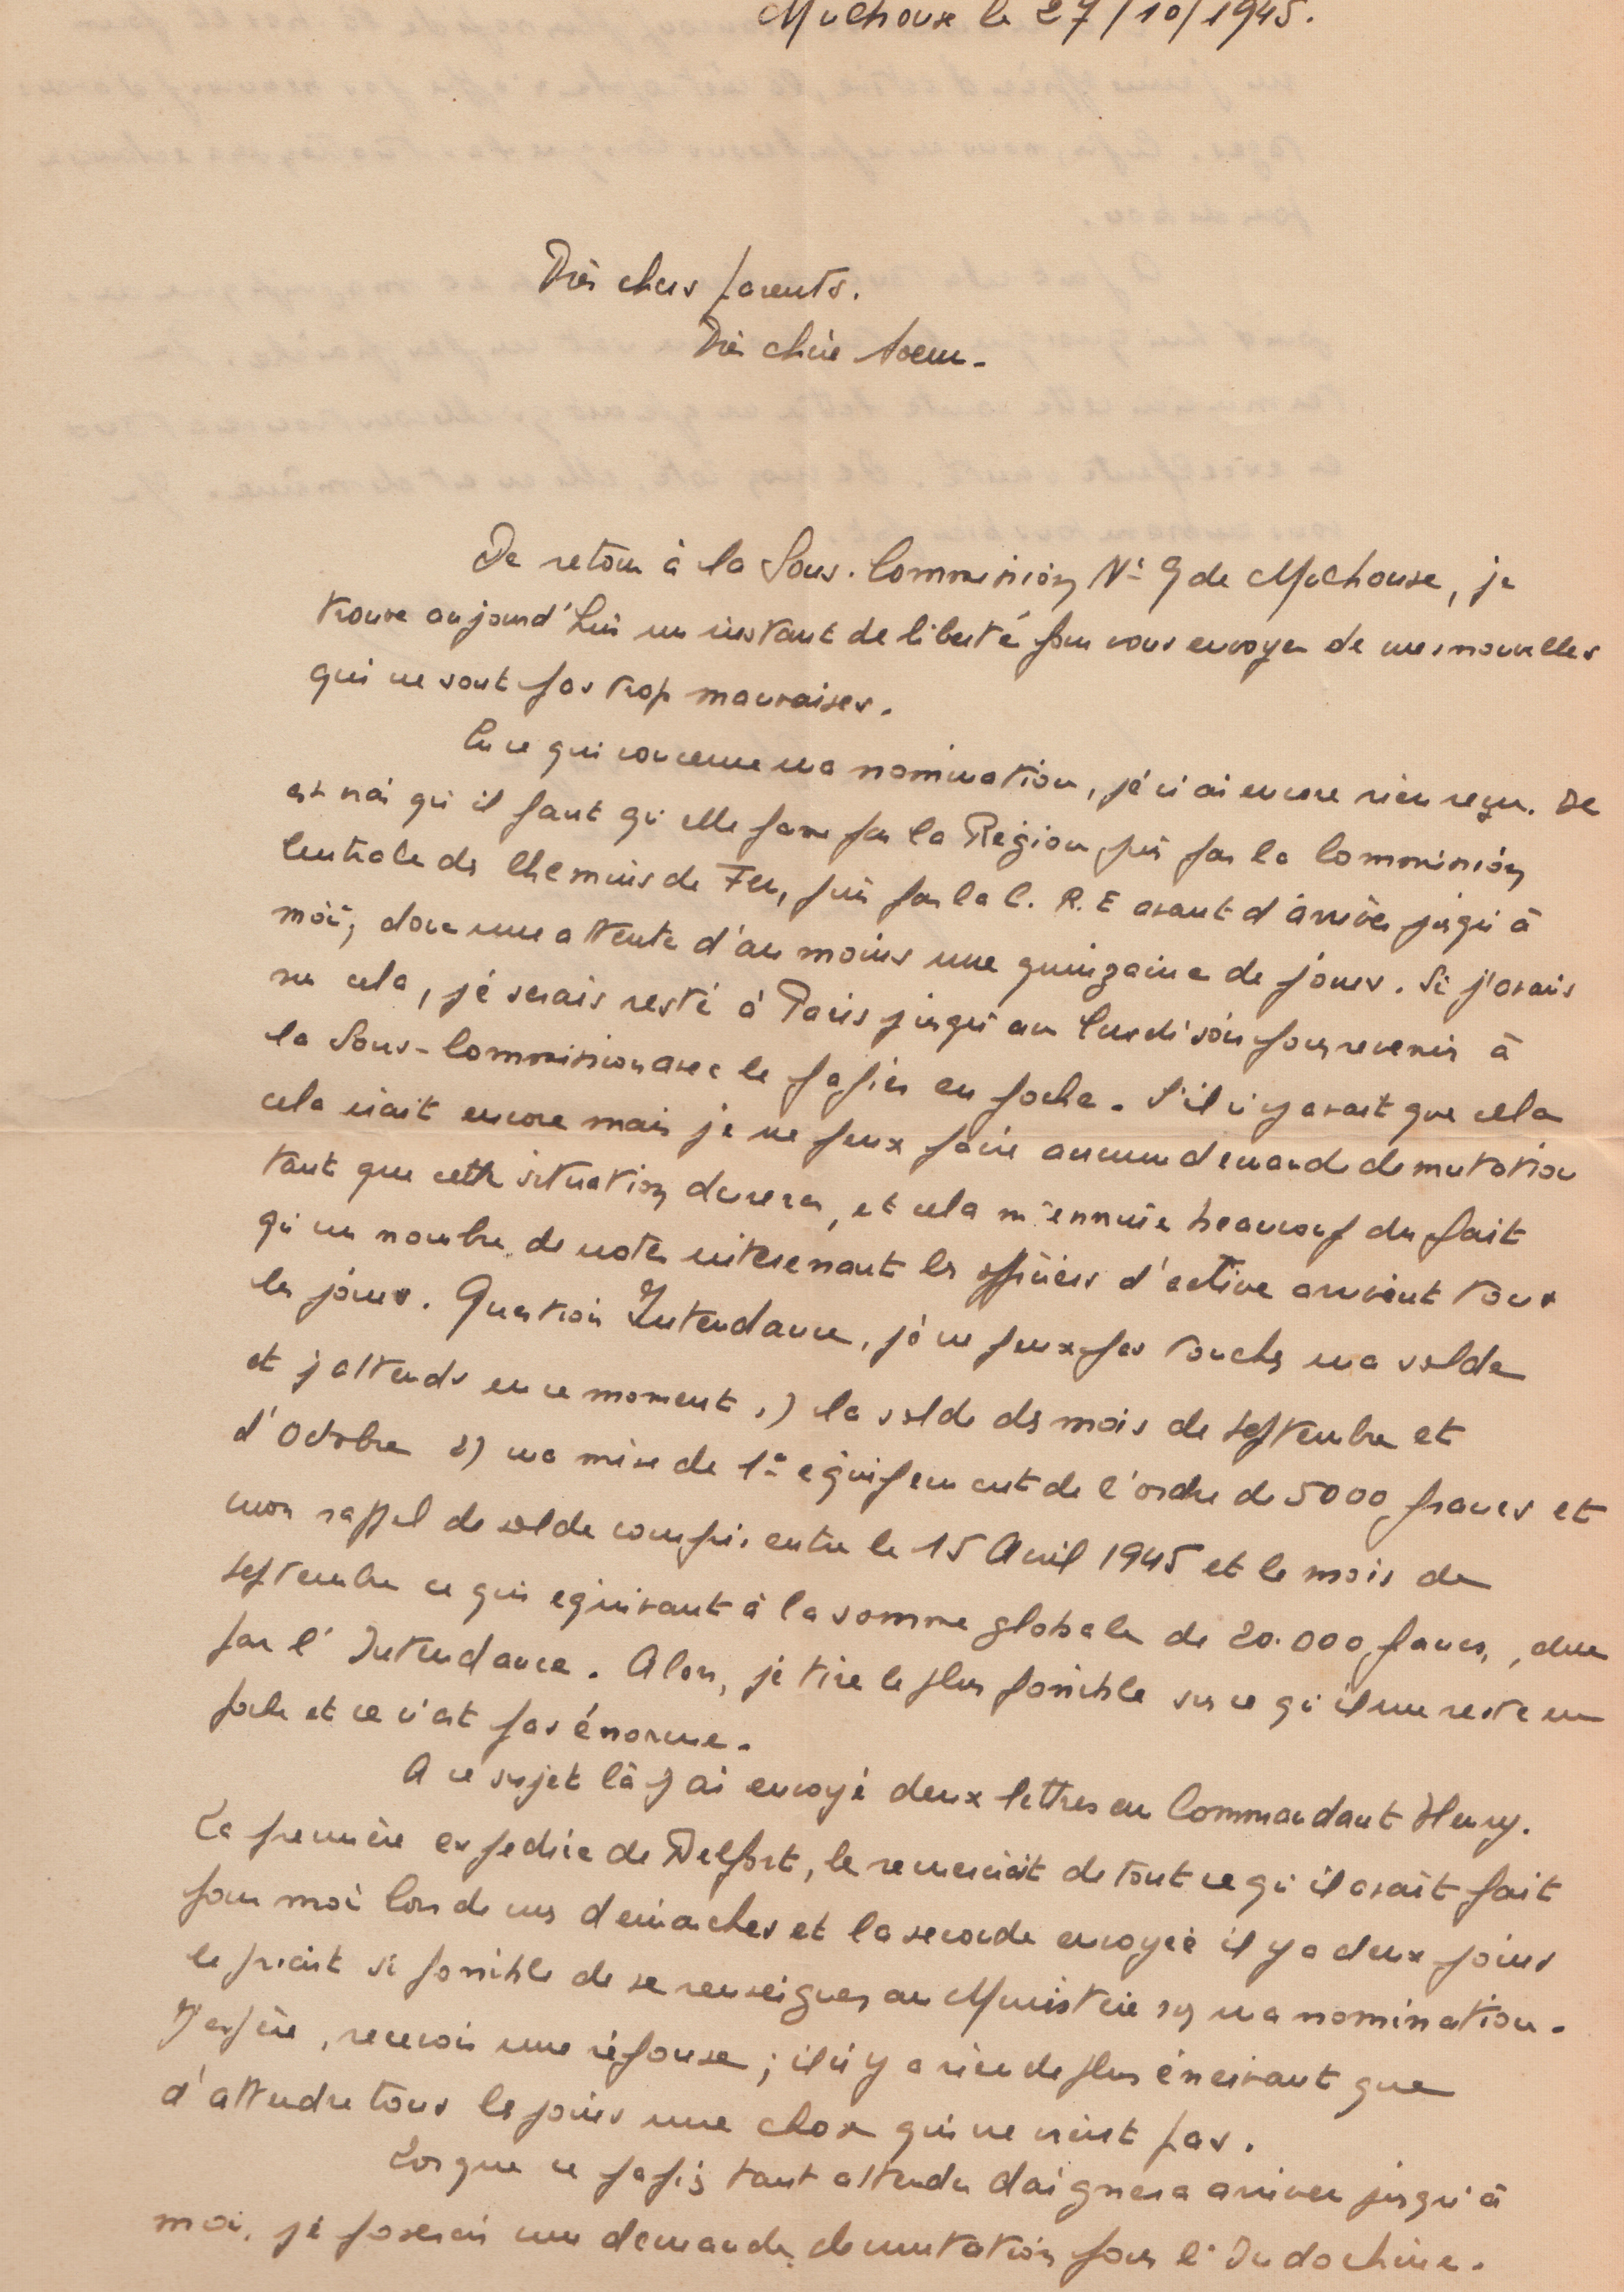 Mulhouse le 27/10/1945.
Très chers parents.
Très chère soeur.
De retour à la Sous-Commission N° 9 de Mulhouse, je
trouve aujourd'hui un instant de liberté pour vous envoyer de mes nouvelles
qui ne sont pas trop mauvaises.
En ce qui concerne ma nomination, je n'ai encore rien reçu. Il
est vrai qu'il faut qu'elle passe par la Région puis par la Commission
Centrale des Chemins de Fer, puis par la C.R.E avant d'arriver jusqu'à
moi, donc une attente d'au moins une quinzaine de jours. Si j'avais
su cela, je serais resté à Paris jusqu'au lundi soir pour revenir à
la Sous-Commission avec le papier en poche. S'il n'y avait que cela
cela irait encore mais je ne peux faire aucune demande de mutation
tant que cette situation durera, et cela m'ennuie beaucoup du fait
qu'un nombre de notes intéressant les officiers d'active arrivent tous
les jours. Question Intendance, je ne peux pas toucher ma solde
et j'attends en ce moment 1) la solde des mois de septembre et
d'Octobre 2) ma mise de 1er équipement de l'ordre de 5000 francs et
mon rappel de solde compris entre le 15 Avril 1945 et le mois de
septembre ce qui equivaut à la somme globale de 20.000 francs, due
par l'Intendance. Alors, je tire le plus possible sur ce qu'il me reste en
poche et ce n'est pas énorme.
A ce sujet là j'ai envoyé deux lettres au Commandant Henry.
La première expediée de Belfort, le remerciait de tout ce qu'il avait fait
pour moi lors de mes démarches et la seconde envoyée il y a deux jours
le priait si possible de se renseigner au Ministère sur ma nomination.
J'espère, recevoir une réponse; il n'y a rien de plus énervant que
d'attendre tous les jours une chose qui ne vient pas.
Lorsque ce papier tant attendu daignera arriver jusqu'à
moi, je poserai une demande de mutation pour l'Indochine.